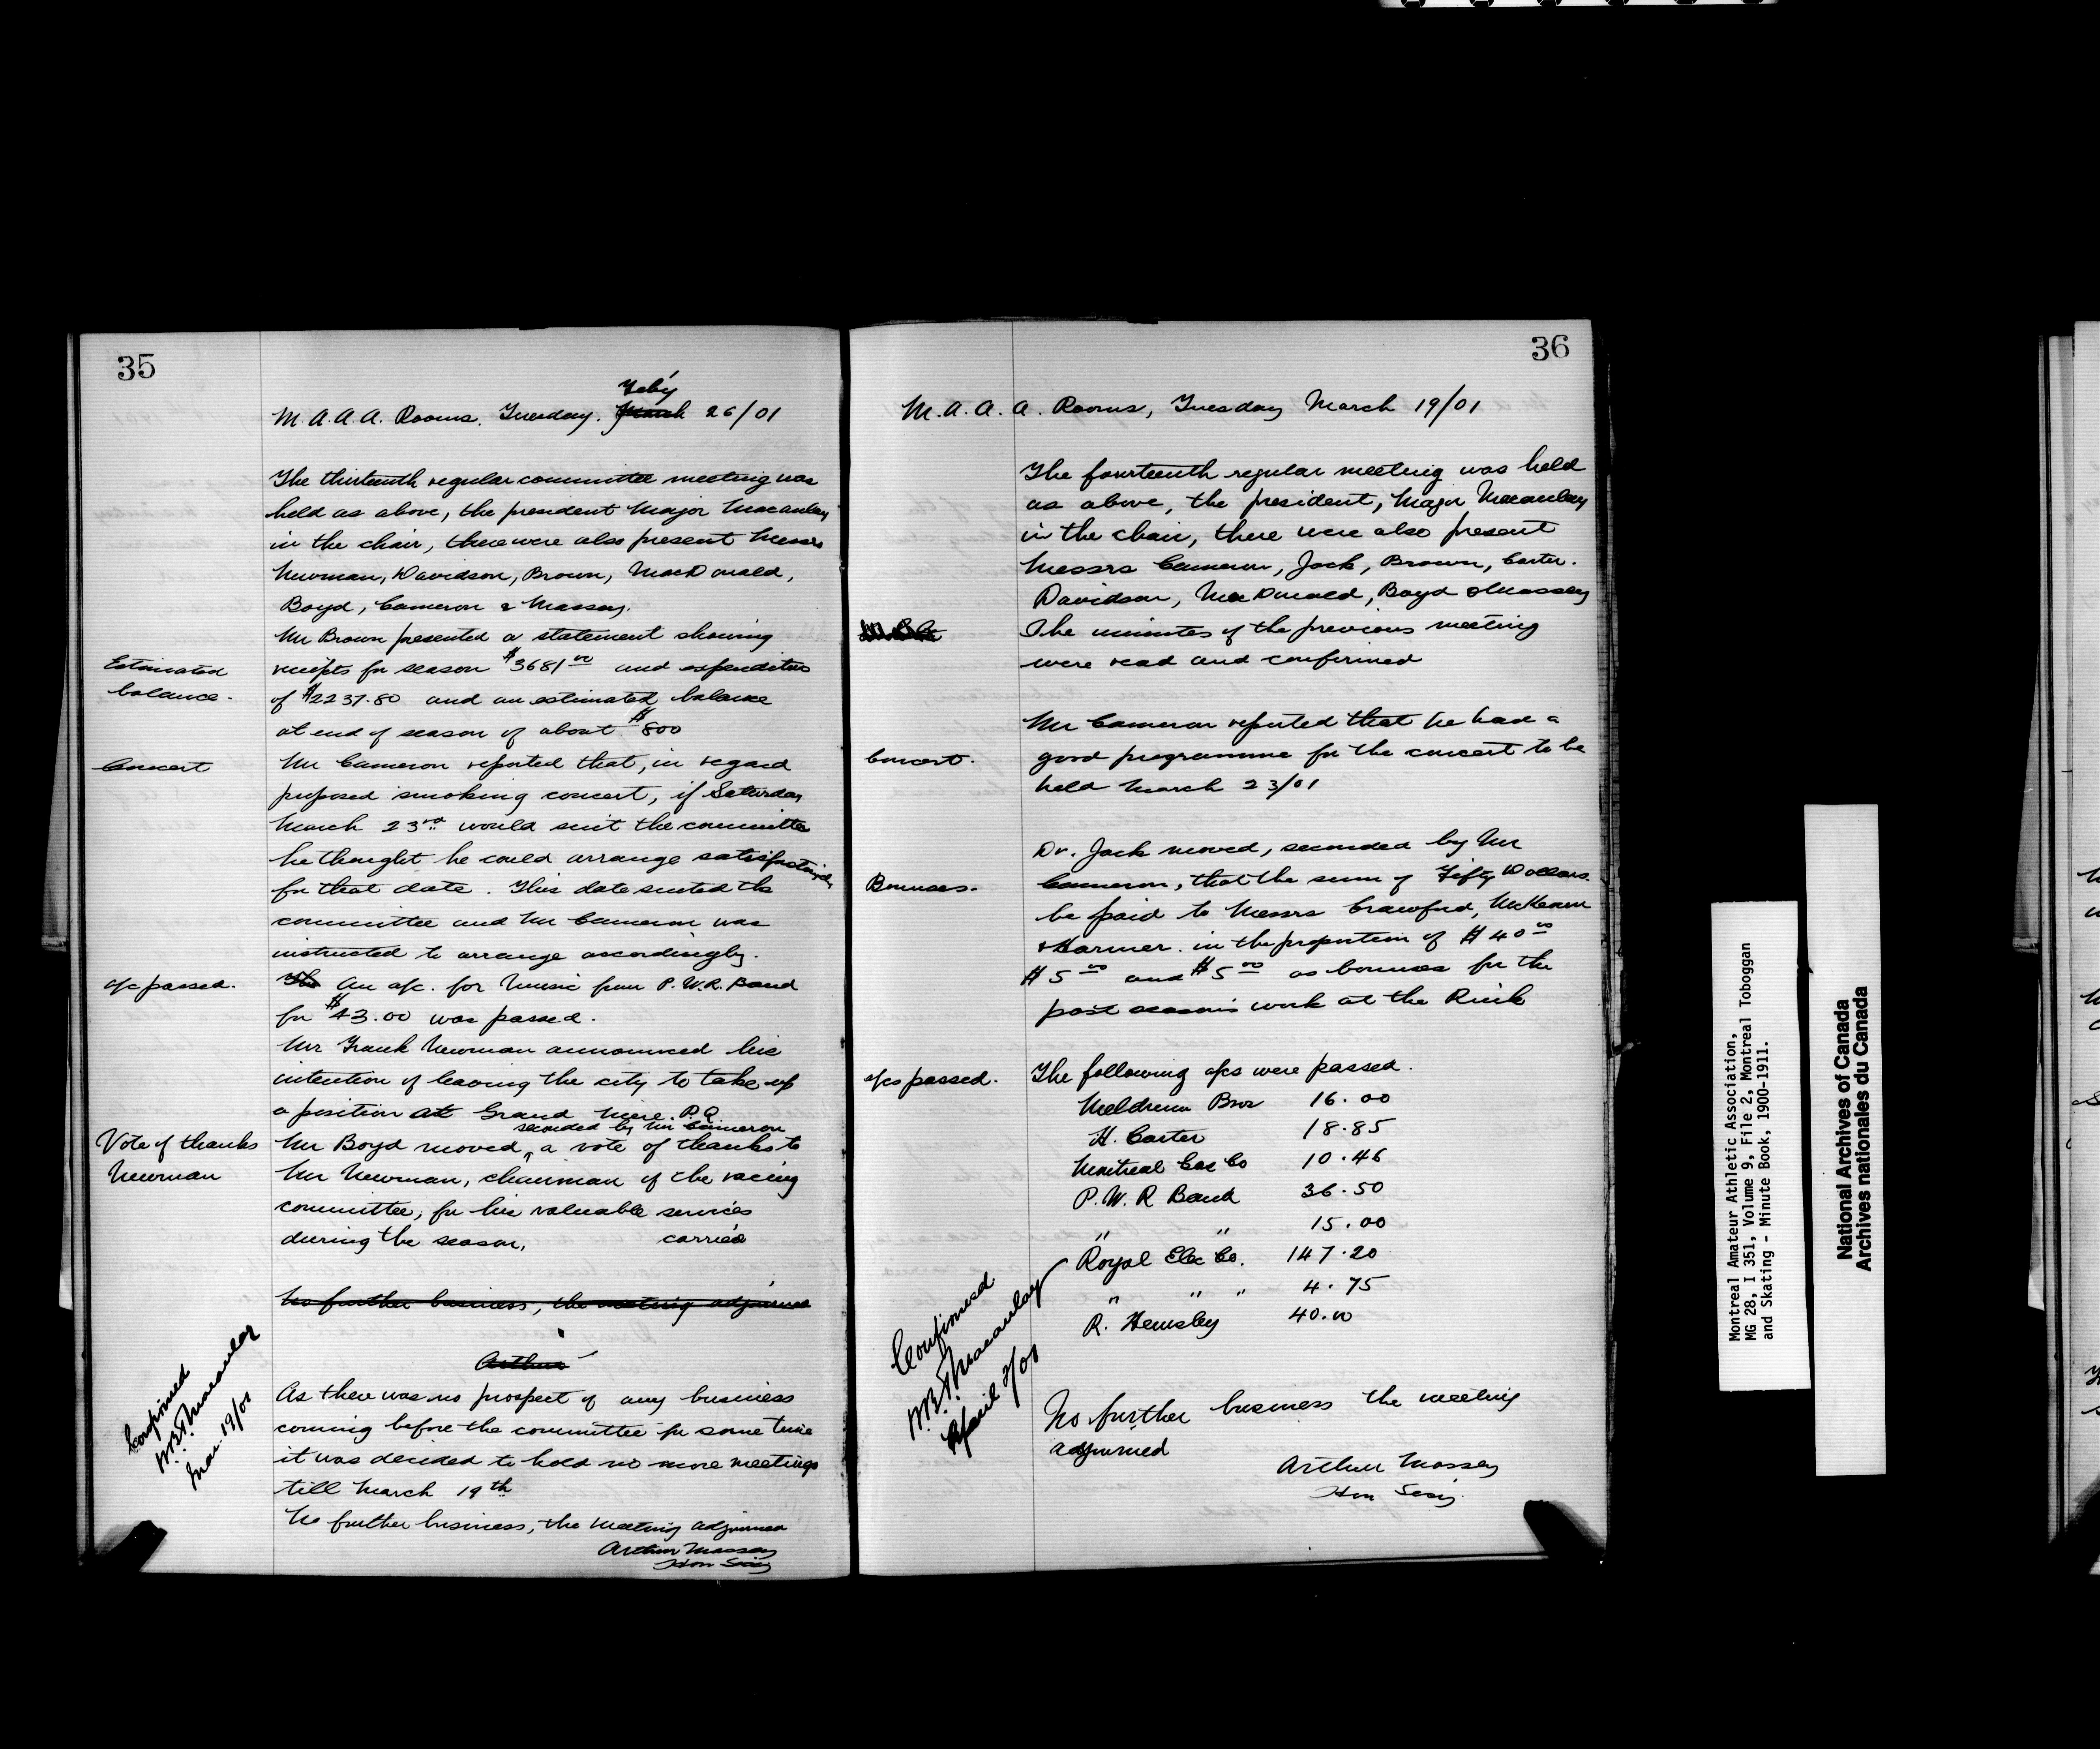 35
Feb'y
M.A.A.A. Rooms. Tuesday. March 26/01
The thirteenth regular committee meeting was
held as above, the president Major Macaulay
in the chair, there were also present Messrs
Newman, Davidson, Brown, MacDonald,
Boyd, Cameron & Massey.
Mr Brown presented a statement showing
Estimated
balance.
receipts for season $3681 00 and expenditure
of $2237.80 and an estimated balance
at end of season of about $800
Concert
Mr Cameron reported that, in regard
proposed smoking concert, if Satturday
March 23rd would suit the committee
he thought he could arrange satisfactorily
for that date. This date suited the
committee and Mr Cameron was
instructed to arrange accordingly.
a/c passed.
The An a/c. for Music from P.W.R. Band
for $43.00 was passed.
Mr Frank Newman announced his
intention of leaving the city to take up
a position at Grand Mere. P.Q
seconded by Mr Cameron
Vote of thanks
Newman
Mr Boyd moved, a vote of thanks to
Mr Newman, chairman of the racing
committee, for his valuable services
during the season, carried
No further business, the meeting adjourned
Arthur
Confirmed
W.B.T. Macaulay
Mar. 19/01
As there was no prospect of any business
coming before the committee for some time
it was decided to hold no more meetings
till March 19th
No further business, the meeting adjourned
Arthur Massey
Hon Secy
36
M.A.A.A. Rooms, Tuesday March 19/01
The fourteenth regular meeting was held
as above, the president, Major Macaulay
in the chair, there were also present
Messrs Cameron, Jack, Brown, Carter.
Davidson, MacDonald, Boyd & Massey
The minutes of the previous meeting
were read and confirmed
Mr Cameron reported that he had a
Concert.
good programme for the concert to be
held March 23/01
Dr. Jack moved, seconded by Mr
Bonuses.
Cameron, that the sum of Fifty Dollars.
be paid to Messrs Crawford,
& in the proportion of $40 00
$5 00 and $5 00 as bonuses for the
past seasons work at the Rink
a/cs passed.
The following a/cs were passed.
Meldrum Bros 16.00
H. Carter 18.85
Montreal Gas Co 10.46
P.W.R Band 36.50
" " 15.00
Royal Elec Co. 147.20
" " " 4.75
R. Hemsley 40.00
Confirmed
W.B.T. Macaulay
April 2/01
No further business the meeting
adjourned
Arthur Massey
Hon Secy.
Montreal Amateur Athletic Association,
MG 28, I 351, Volume 9, File 2, Montreal Toboggan
and Skating - Minute Book, 1900-1911.
National Archives of Canada
Archives nationales du Canada